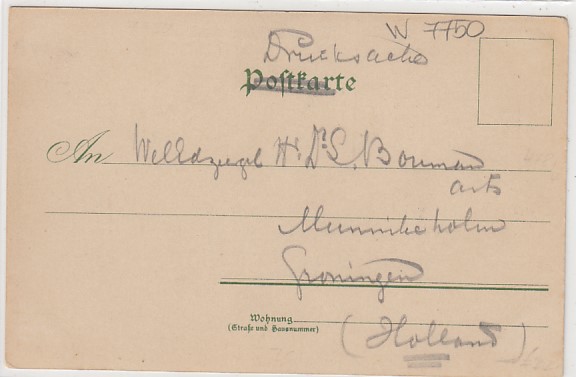 W 7750
Drucksache
Postkarte
An Bouman
arts
Munnikeholm
Groningen
Wohnung
(Straße und Hausnummer)
(Holland)